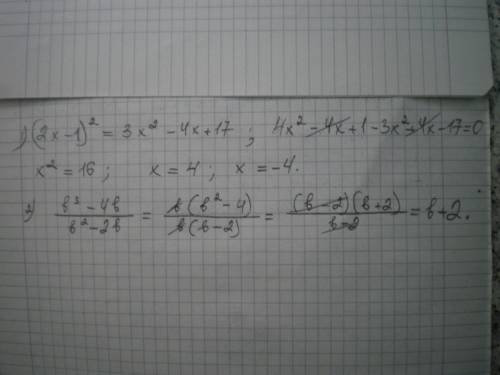 1) (2x-1)² = 3x² - 4x + 17 ; 4x² - 4x + 1 - 3x² + 4x - 17 = 0
x² = 16 ; x = 4 ; x = -4.
2) (b³ - 4b)/(b² - 2b) = (b(b² - 4))/(b(b - 2)) = ((b - 2)(b + 2))/(b - 2) = b + 2.